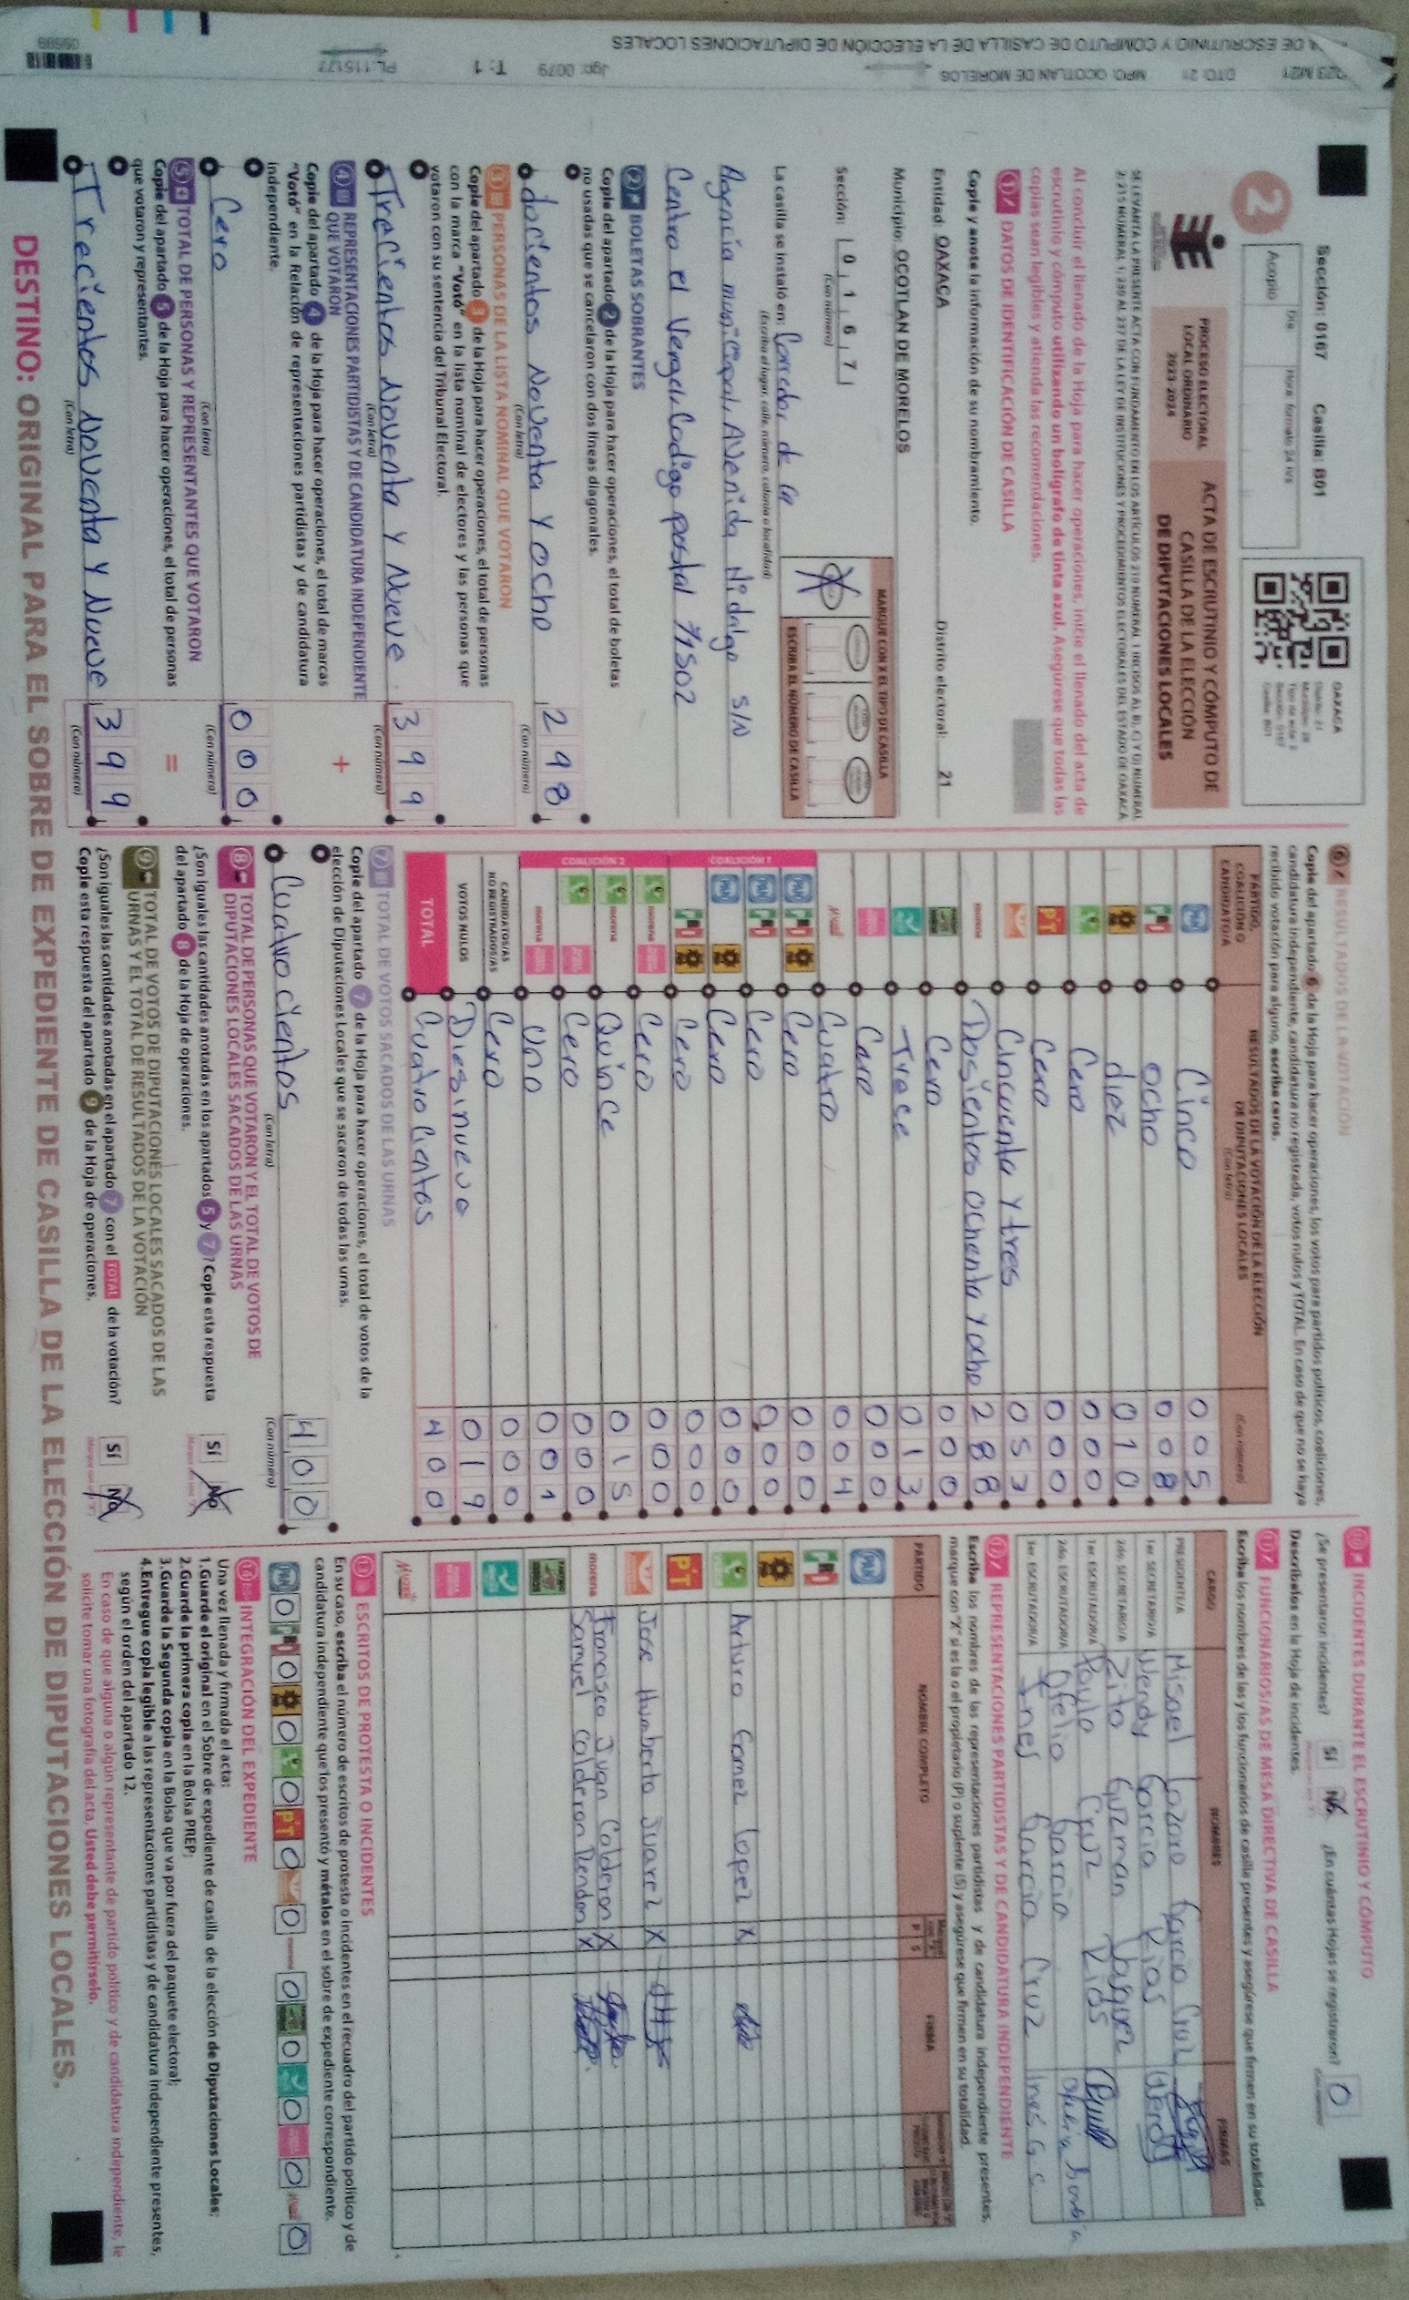 Sección: 0167 Casilla: B01
OAXACA
2
Acopio
Día
Hora: formato 24 hrs
PROCESO ELECTORAL
LOCAL ORDINARIO
2023-2024
ACTA DE ESCRUTINIO Y CÓMPUTO DE
CASILLA DE LA ELECCIÓN
DE DIPUTACIONES LOCALES
Al concluir el llenado de la Hoja para hacer operaciones, inicie el llenado del acta de
escrutinio y cómputo utilizando un bolígrafo de tinta azul. Asegúrese que todas las
copias sean legibles y atienda las recomendaciones.
1 DATOS DE IDENTIFICACIÓN DE CASILLA
Copie y anote la información de su nombramiento.
Entidad: OAXACA Distrito electoral: 21
Municipio: OCOTLAN DE MORELOS
Sección: 0 1 6 7
(Con número)
MARQUE CON X EL TIPO DE CASILLA
ESCRIBA EL NÚMERO DE CASILLA
La casilla se instaló en: Corredor de la
(Escriba el lugar, calle, número, colonia o localidad)
Agencia municipal, Avenida Hidalgo S/N
Centro el Vergel, Codigo postal 71502
2 BOLETAS SOBRANTES
Copie del apartado 2 de la Hoja para hacer operaciones, el total de boletas
no usadas que se cancelaron con dos líneas diagonales.
docientos Noventa y ocho 298
(Con letra) (Con número)
3 PERSONAS DE LA LISTA NOMINAL QUE VOTARON
Copie del apartado 3 de la Hoja para hacer operaciones, el total de personas
con la marca "Votó" en la lista nominal de electores y las personas que
votaron con su sentencia del Tribunal Electoral.
Trecientos Noventa y Nueve 399
(Con letra) (Con número)
4 REPRESENTACIONES PARTIDISTAS Y DE CANDIDATURA INDEPENDIENTE
QUE VOTARON
+
Copie del apartado 4 de la Hoja para hacer operaciones, el total de marcas
"Votó" en la Relación de representaciones partidistas y de candidatura
independiente.
Cero 000
(Con letra) (Con número)
5 TOTAL DE PERSONAS Y REPRESENTANTES QUE VOTARON
=
Copie del apartado 5 de la Hoja para hacer operaciones, el total de personas
que votaron y representantes.
Trecientos Noventa y Nueve 399
(Con letra) (Con número)
6 RESULTADOS DE LA VOTACIÓN
Copie del apartado 6 de la Hoja para hacer operaciones, los votos para partidos políticos, coaliciones,
candidatura independiente, candidatura no registrada, votos nulos y TOTAL. En caso de que no se haya
recibido votación para alguno, escriba ceros.
PARTIDO,
COALICIÓN O
CANDIDATO/A
RESULTADOS DE LA VOTACIÓN DE LA ELECCIÓN
DE DIPUTACIONES LOCALES
(Con letra)
(Con número)
PAN Cinco 005
PRI ocho 008
diez 010
Cero 000
PT Cero 000
Cincuenta y tres 053
morena Dosientos ochenta y ocho 288
Cero 000
Trece 013
Cero 000
Cuatro 004
COALICIÓN 1
PAN PRI Cero 000
PAN PRI Cero 000
PAN Cero 000
PRI Cero 000
COALICIÓN 2
morena Cero 000
morena Quince 015
Cero 000
morena Uno 001
CANDIDATOS/AS
NO REGISTRADOS/AS Cero 000
VOTOS NULOS Diesinueve 019
TOTAL Cuatro Cientos 400
7 TOTAL DE VOTOS SACADOS DE LAS URNAS
Copie del apartado 7 de la Hoja para hacer operaciones, el total de votos de la
elección de Diputaciones Locales que se sacaron de todas las urnas.
Cuatro Cientos 400
(Con letra) (Con número)
8 TOTAL DE PERSONAS QUE VOTARON Y EL TOTAL DE VOTOS DE
DIPUTACIONES LOCALES SACADOS DE LAS URNAS
¿Son iguales las cantidades anotadas en los apartados 5 y 7? Copie esta respuesta
del apartado 8 de la Hoja de operaciones.
Sí No
9 TOTAL DE VOTOS DE DIPUTACIONES LOCALES SACADOS DE LAS
URNAS Y EL TOTAL DE RESULTADOS DE LA VOTACIÓN
¿Son iguales las cantidades anotadas en el apartado 7 con el TOTAL de la votación?
Copie esta respuesta del apartado 9 de la Hoja de operaciones.
Sí No
10 INCIDENTES DURANTE EL ESCRUTINIO Y CÓMPUTO
¿Se presentaron incidentes? Sí No ¿En cuántas Hojas se registraron? 0
Descríbalos en la Hoja de incidentes.
11 FUNCIONARIOS/AS DE MESA DIRECTIVA DE CASILLA
Escriba los nombres de las y los funcionarios de casilla presentes y asegúrese que firmen en su totalidad.
CARGO NOMBRES FIRMAS
PRESIDENTE/A Misael Lazaro Garcia Cruz
1er. SECRETARIO/A Wendy Garcia Rios
2do. SECRETARIO/A Zito Guzman Vasquez
1er. ESCRUTADOR/A Paula Cruz Rios
2do. ESCRUTADOR/A Ofelia Garcia
3er. ESCRUTADOR/A Ines Garcia Cruz Ines G. C
12 REPRESENTACIONES PARTIDISTAS Y DE CANDIDATURA INDEPENDIENTE
Escriba los nombres de las representaciones partidistas y de candidatura independiente presentes,
marque con "X" si es la o el propietario (P) o suplente (S) y asegúrese que firmen en su totalidad.
PARTIDO NOMBRE COMPLETO P S FIRMA
PAN
PRI
Arturo Gomez Lopez X
PT
Jose Humberto Juarez X
morena Francisco Juan Calderon X
Samuel Calderon Rendon X
13 ESCRITOS DE PROTESTA O INCIDENTES
En su caso, escriba el número de escritos de protesta o incidentes en el recuadro del partido político y de
candidatura independiente que los presentó y métalos en el sobre de expediente correspondiente.
PAN 0 PRI 0 0 0 PT 0 0 0 0 0 0 0
14 INTEGRACIÓN DEL EXPEDIENTE
Una vez llenada y firmada el acta:
1.Guarde el original en el Sobre de expediente de casilla de la elección de Diputaciones Locales;
2.Guarde la primera copia en la Bolsa PREP;
3.Guarde la Segunda copia en la Bolsa que va por fuera del paquete electoral;
4.Entregue copia legible a las representaciones partidistas y de candidatura independiente presentes,
según el orden del apartado 12.
En caso de que alguna o algún representante de partido político y de candidatura independiente, le
solicite tomar una fotografía del acta, Usted debe permitírselo.
DESTINO: ORIGINAL PARA EL SOBRE DE EXPEDIENTE DE CASILLA DE LA ELECCIÓN DE DIPUTACIONES LOCALES.
DE ESCRUTINIO Y COMPUTO DE CASILLA DE LA ELECCIÓN DE DIPUTACIONES LOCALES
DTO: 21 MPO: OCOTLAN DE MORELOS Jgo: 0079 T: 1 PL: 115177